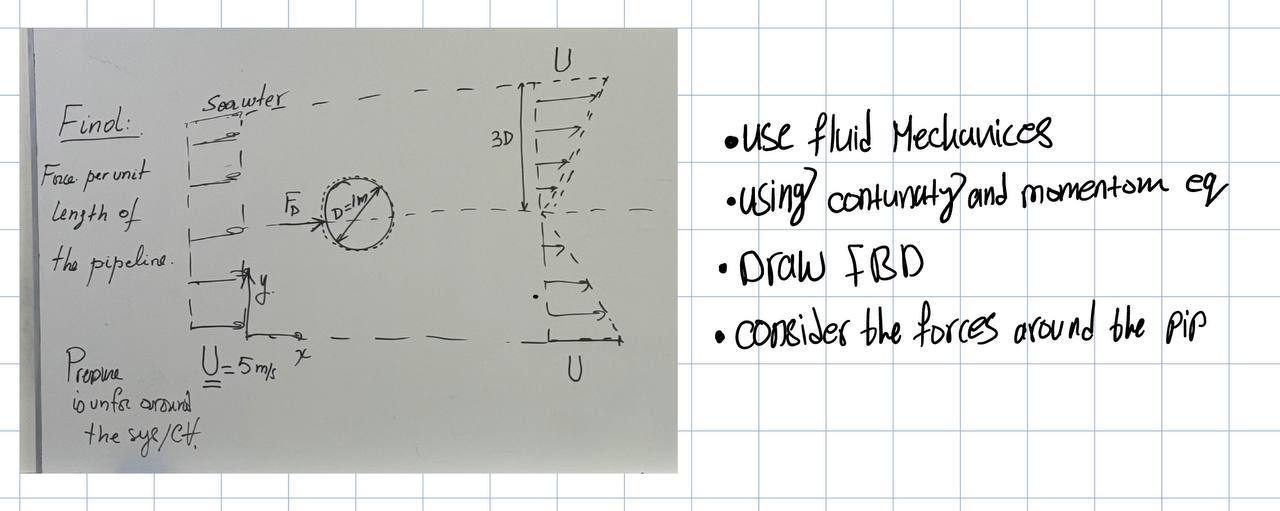 Find:
Force per unit
length of
the pipeline.
Seawter
U
3D
F_D
D=1m
y
x
U = 5 m/s
U
is unfor around
the sys/CV.
• use fluid Mechanices
• using contunuty and momentom eq
• Draw FBD
• consider the forces around the pip